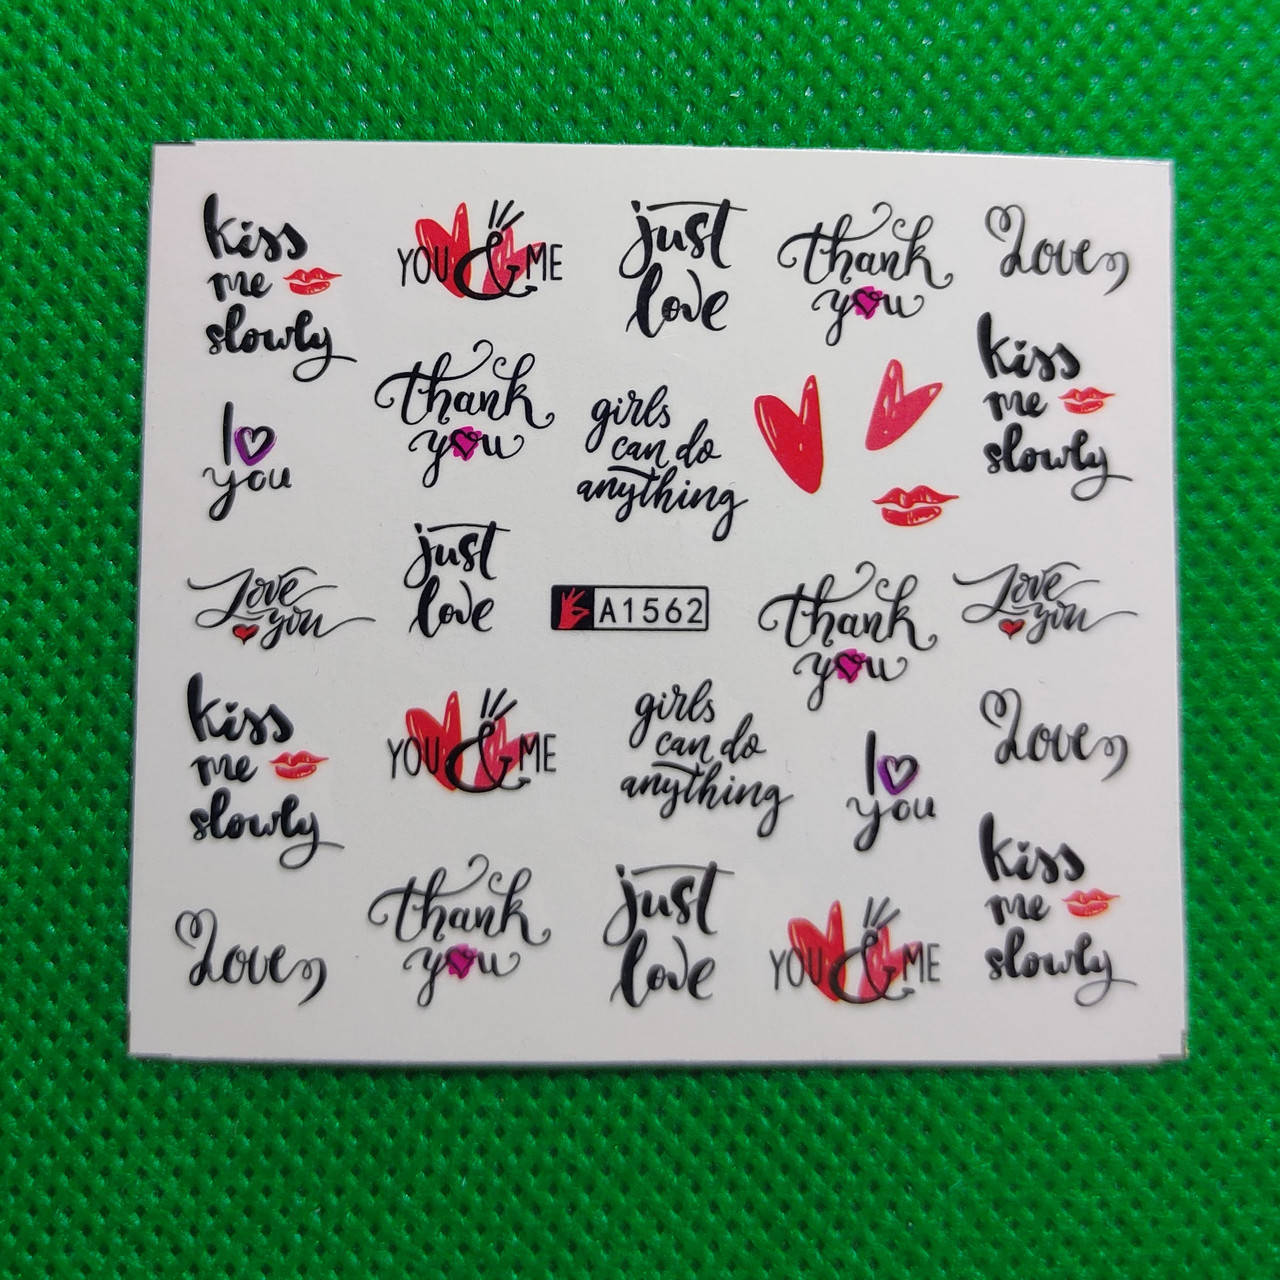 kiss
me
slowly
YOU & ME
just
love
thank
you
Love
thank
you
girls
can do
anything
kiss
me
slowly
I
you
just
love
Love
you
A1562
thank
you
Love
you
kiss
me
slowly
YOU & ME
girls
can do
anything
I
you
Love
kiss
me
slowly
Love
thank
you
just
love
YOU & ME